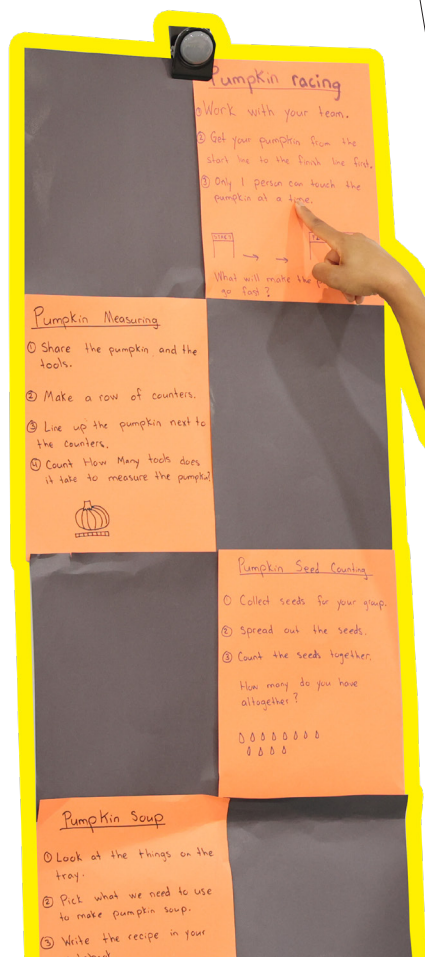 Pumpkin racing
① Work with your team.
② Get your pumpkin from the
start line to the finish line first.
③ Only 1 person can touch the
pumpkin at a time.
START
What will make the
go fast?
Pumpkin Measuring
① Share the pumpkin and the
tools.
② Make a row of counters.
③ Line up the pumpkin next to
the counters.
④ Count How Many tools does
it take to measure the pumpkin?
Pumpkin Seed Counting
① Collect seeds for your group.
② Spread out the seeds.
③ Count the seeds together.
How many do you have
altogether?
Pumpkin Soup
① Look at the things on the
tray.
② Pick what we need to use
to make pumpkin soup.
③ Write the recipe in your